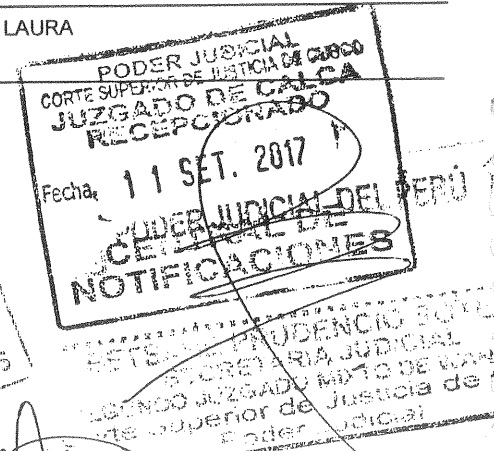 LAURA
PODER JUDICIAL
CORTE SUPERIOR DE JUSTICIA DE CUSCO
JUZGADO DE CALCA
RECEPCIONADO
Fecha, 11 SET. 2017
PODER JUDICIAL DEL PERÚ
CENTRAL DE
NOTIFICACIONES
PRUDENCIO
SECRETARIA JUDICIAL
JUZGADO MIXTO DE
Superior de Justicia de
Poder Judicial